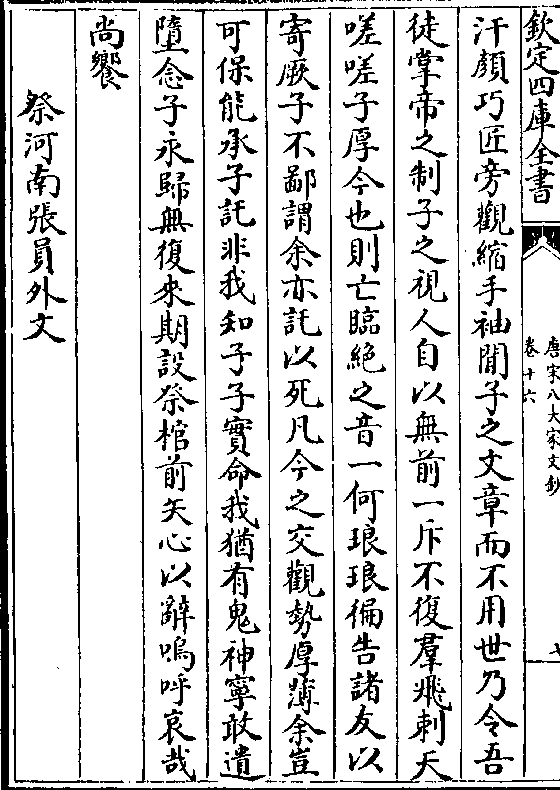 欽定四庫全書
唐宋八大家文鈔
卷十六
七
汗顔巧匠旁觀縮手袖間子之文章而不用世乃令吾
徒掌帝之制子之視人自以無前一斥不復羣飛刺天
嗟嗟子厚今也則亡臨絶之音一何琅琅徧告諸友以
寄厥子不鄙謂余亦託以死凡今之交觀勢厚薄余豈
可保能承子託非我知子子實命我猶有鬼神寧敢遺
墮念子永歸無復來期設祭棺前矢心以辭嗚呼哀哉
尚饗
祭河南張員外文